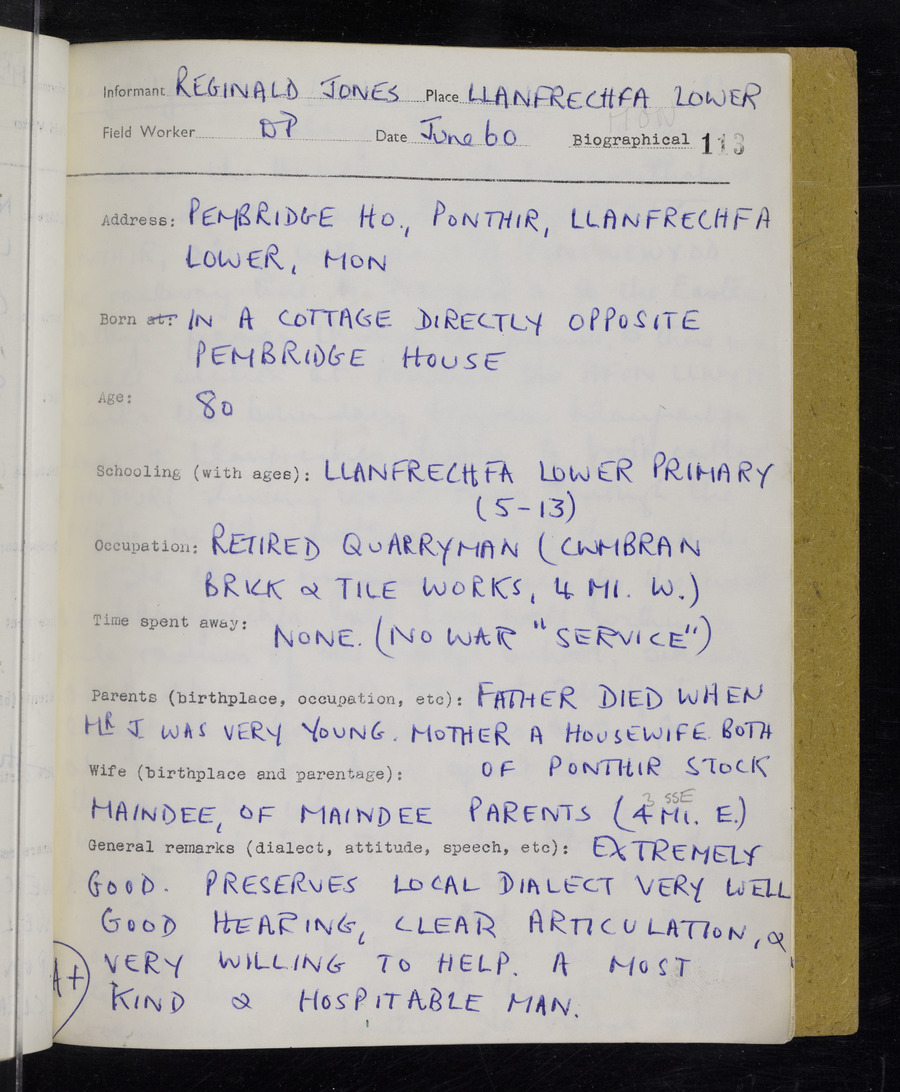 Informant REGINALD JONES Place LLANFRECHFA LOWER
MON
Field Worker DP Date June 60 Biographical 113
Address: PEMBRIDGE HO., PONTHIR, LLANFRECHFA
LOWER, MON
Born at: IN A COTTAGE DIRECTLY OPPOSITE
PEMBRIDGE HOUSE
Age: 80
Schooling (with ages): LLANFRECHFA LOWER PRIMARY
(5-13)
Occupation: RETIRED QUARRYMAN (CWMBRAN
BRICK & TILE WORKS, 4 MI. W.)
Time spent away: NONE. (NO WAR "SERVICE")
Parents (birthplace, occupation, etc): FATHER DIED WHEN
MR J WAS VERY YOUNG. MOTHER A HOUSEWIFE. BOTH
OF PONTHIR STOCK
Wife (birthplace and parentage):
3 SSE
MAINDEE, OF MAINDEE PARENTS (4 MI. E.)
General remarks (dialect, attitude, speech, etc): EXTREMELY
GOOD. PRESERVES LOCAL DIALECT VERY WELL
GOOD HEARING, CLEAR ARTICULATION, &
A+ VERY WILLING TO HELP. A MOST
KIND & HOSPITABLE MAN.